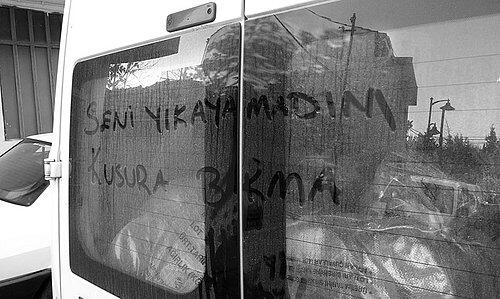 SENİ YIKAYAMADIM
KUSURA BAKMA